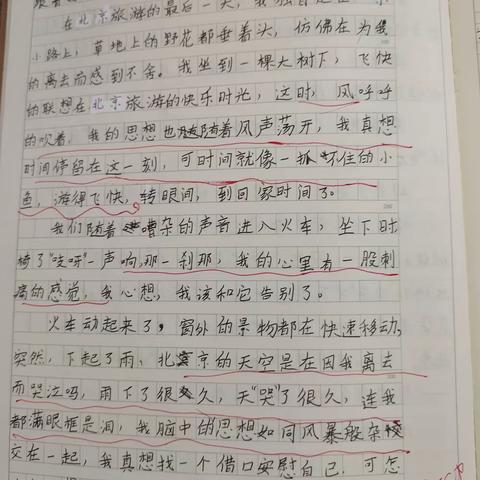 在北京旅游的最后一天,我独自走在
小路上,草地上的野花都垂着头,仿佛在为我
的离去而感到不舍。我坐到一棵大树下,飞快
的联想在北京旅游的快乐时光,这时,风呼呼
的吹着,我的思想也随着风声荡开,我真想
时间停留在这一刻,可时间就像一抓不住的小
鱼,游得飞快,转眼间,到回家时间了。
我们随着嘈杂的声音进入火车,坐下时
椅子"吱呀"一声响,那一刹那,我的心里有一股刺
痛的感觉,我心想,我该和它告别了。
火车动起来了,窗外的景物都在快速移动,
突然,下起了雨,北京的天空是在因我离去
而哭泣吗,雨下了很久,天"哭"了很久,连我
都满眼框是泪,我脑中的思想如同风暴般杂
交在一起,我真想找一个借口安慰自己,可怎